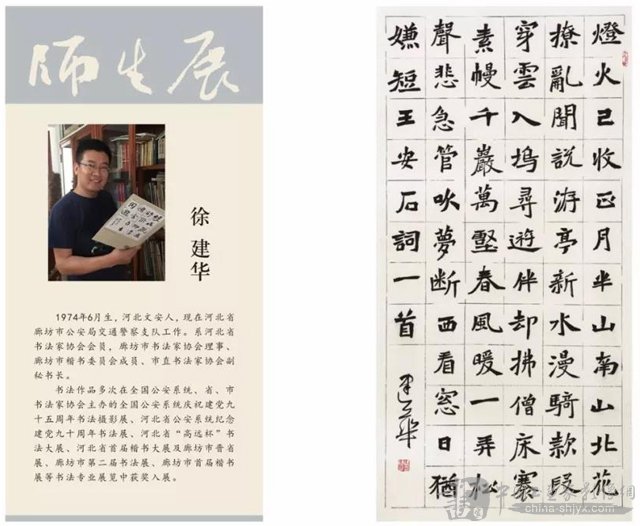 师生展
徐建华
1974年6月生，河北文安人，现在河北省
廊坊市公安局交通警察支队工作。系河北省
书法家协会会员，廊坊市书法家协会理事、
廊坊市楷书委员会成员、市直书法家协会副
秘书长。
书法作品多次在全国公安系统、省、市
书法家协会主办的全国公安系统庆祝建党九
十五周年书法摄影展、河北省公安系统纪念
建党九十周年书法展、河北省“高远杯”书
法大展、河北省首届楷书大展及廊坊市晋省
展、廊坊市第二届书法展、廊坊市首届楷书
展等书法专业展览中获奖入展。
燈火已收正月半山南山北花
撩亂聞説洊亭新水漫騎款段
穿雲入塢尋遊伴却拂僧床褰
素幔千巖萬壑春風暖一弄松
聲悲急管吹夢断西看窓日猶
嫌短王安石詞一首
建華
china-shjyx.com